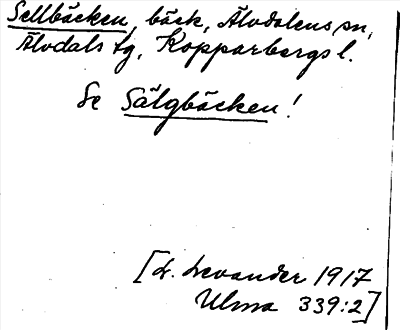 Sellbäcken, bäck, Älvdalens sn,
Älvdals tg, Kopparbergs l.
Se Sälgbäcken!
[L. Levander 1917
Ulma 339:2]